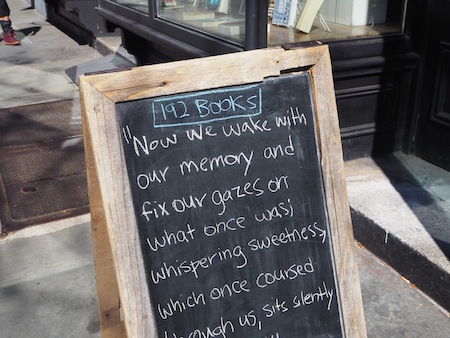 192 Books
"Now we wake with
our memory and
fix our gazes on
what once was;
whispering sweetness,
which once coursed
through us, sits silently